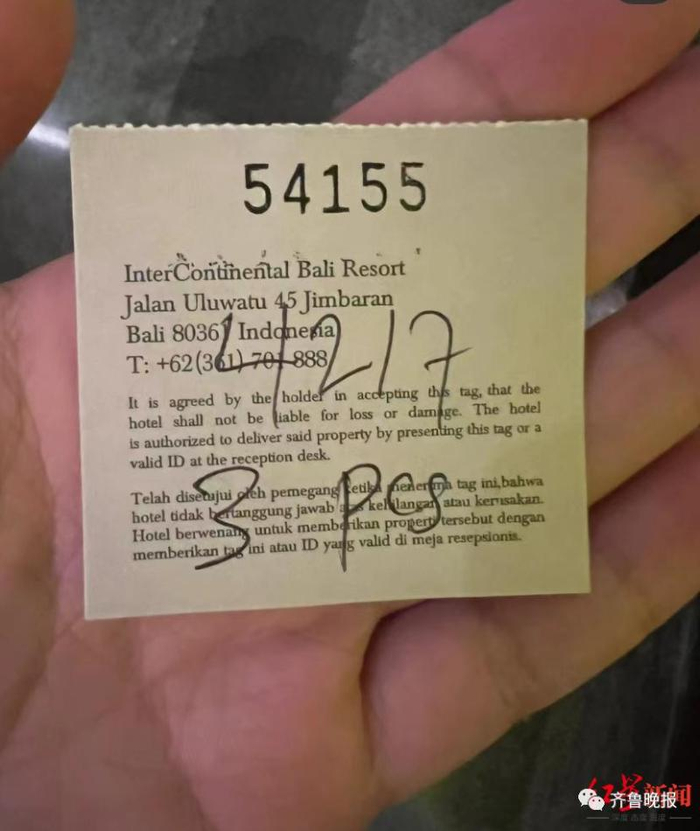 54155
InterContinental Bali Resort
Jalan Uluwatu 45 Jimbaran
Bali 80361 Indonesia
T: +62(361) 701 888
4217
It is agreed by the holder in accepting this tag, that the
hotel shall not be liable for loss or damage. The hotel
is authorized to deliver said property by presenting this tag or a
valid ID at the reception desk.
Telah disetujui oleh pemegang ketika menerima tag ini,bahwa
hotel tidak bertanggung jawab atas kehilangan atau kerusakan.
Hotel berwenang untuk memberikan properti tersebut dengan
memberikan tag ini atau ID yang valid di meja resepsionis.
3 pcs
红星新闻
齐鲁晚报
深度 态度 温度